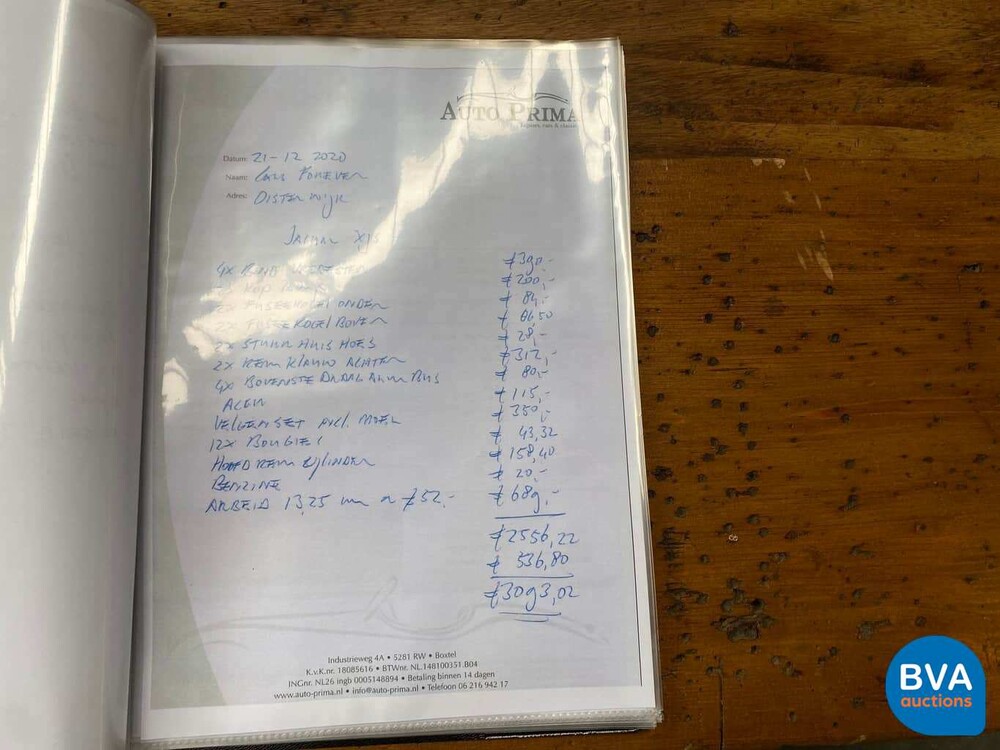 AUTO PRIMA
Datum: 21-12 2020
Naam: Cars Forever
Adres: Oisterwijk
Jaguar XJS
4x € 390,-
€ 200,-
Fuseekogel onder € 84,-
2x Fuseekogel boven € 86,50
2x Stuurhuis hoes € 28,-
2x Rem klauw achter € 312,-
4x Bovenste draagarm bus € 80,-
€ 115,-
Velgenset incl. € 350,-
12x Bougies € 43,32
Hoofdrem cylinder € 158,40
Benzine € 20,-
Arbeid 13,25 uur a €52,- € 689,-
€ 2556,22
€ 536,80
€ 3093,02
Industrieweg 4A • 5281 RW • Boxtel
K.v.K.nr. 18085616 • BTWnr. NL.148100351.B04
INGnr. NL26 ingb 0005148894 • Betaling binnen 14 dagen
www.auto-prima.nl • info@auto-prima.nl • Telefoon 06 216 942 17
BVA
auctions